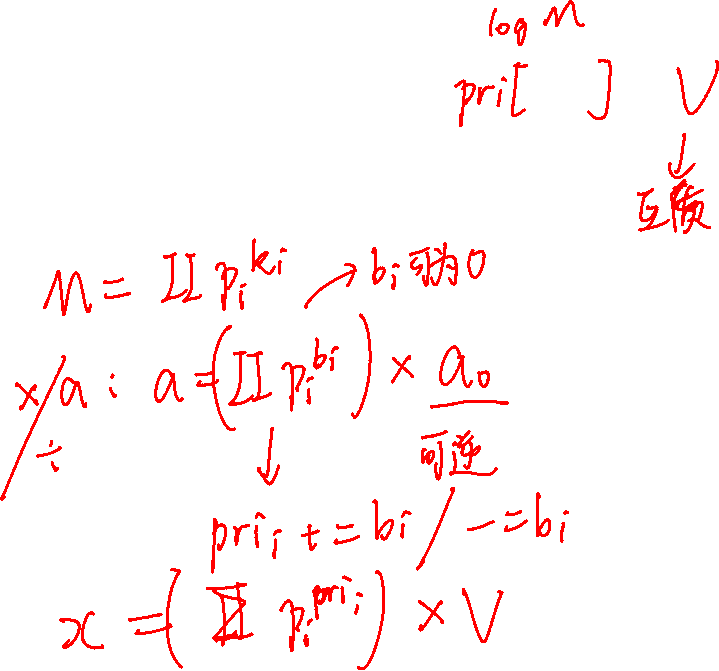 log n
pri[ ] V
↓
互质
n = ∏ p_i^{k_i} → b_i 可为 0
×/÷ a : a = (∏ p_i^{b_i}) × a_0
↓ 可逆
pri_i += b_i / -= b_i
x = (∏ p_i^{pri_i}) × V